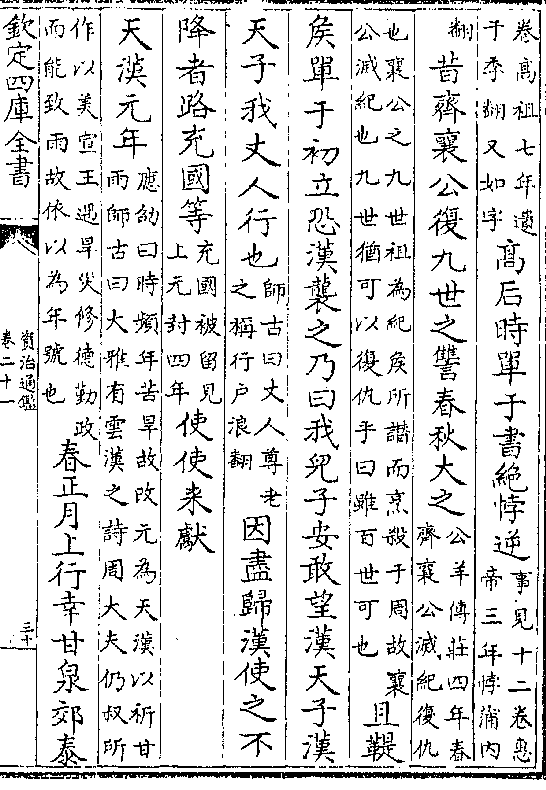 卷髙祖七年遺
于季翻又如字
髙后時單于書絶悖逆
事見十二卷惠
帝三年悖蒲内
翻
昔齊襄公復九世之讐春秋大之
公羊傳莊四年春
齊襄公滅紀復仇
也襄公之九世祖為紀矦所譖而烹殺于周故襄
公滅紀也九世猶可以復仇乎曰雖百世可也
且鞮
矦單于初立恐漢襲之乃曰我兒子安敢望漢天子漢
天子我丈人行也
師古曰丈人尊老
之稱行户浪翻
因盡歸漢使之不
降者路充國等
充國被留見
上元封四年
使使来獻
天漢元年
應劭曰時頻年苦旱故改元為天漢以祈甘
雨師古曰大雅有雲漢之詩周大夫仍叔所
作以美宣王遇旱災修德勤政
而能致雨故依以為年號也
春正月上行幸甘泉郊泰
欽定四庫全書
資治通鑑
卷二十一
三十